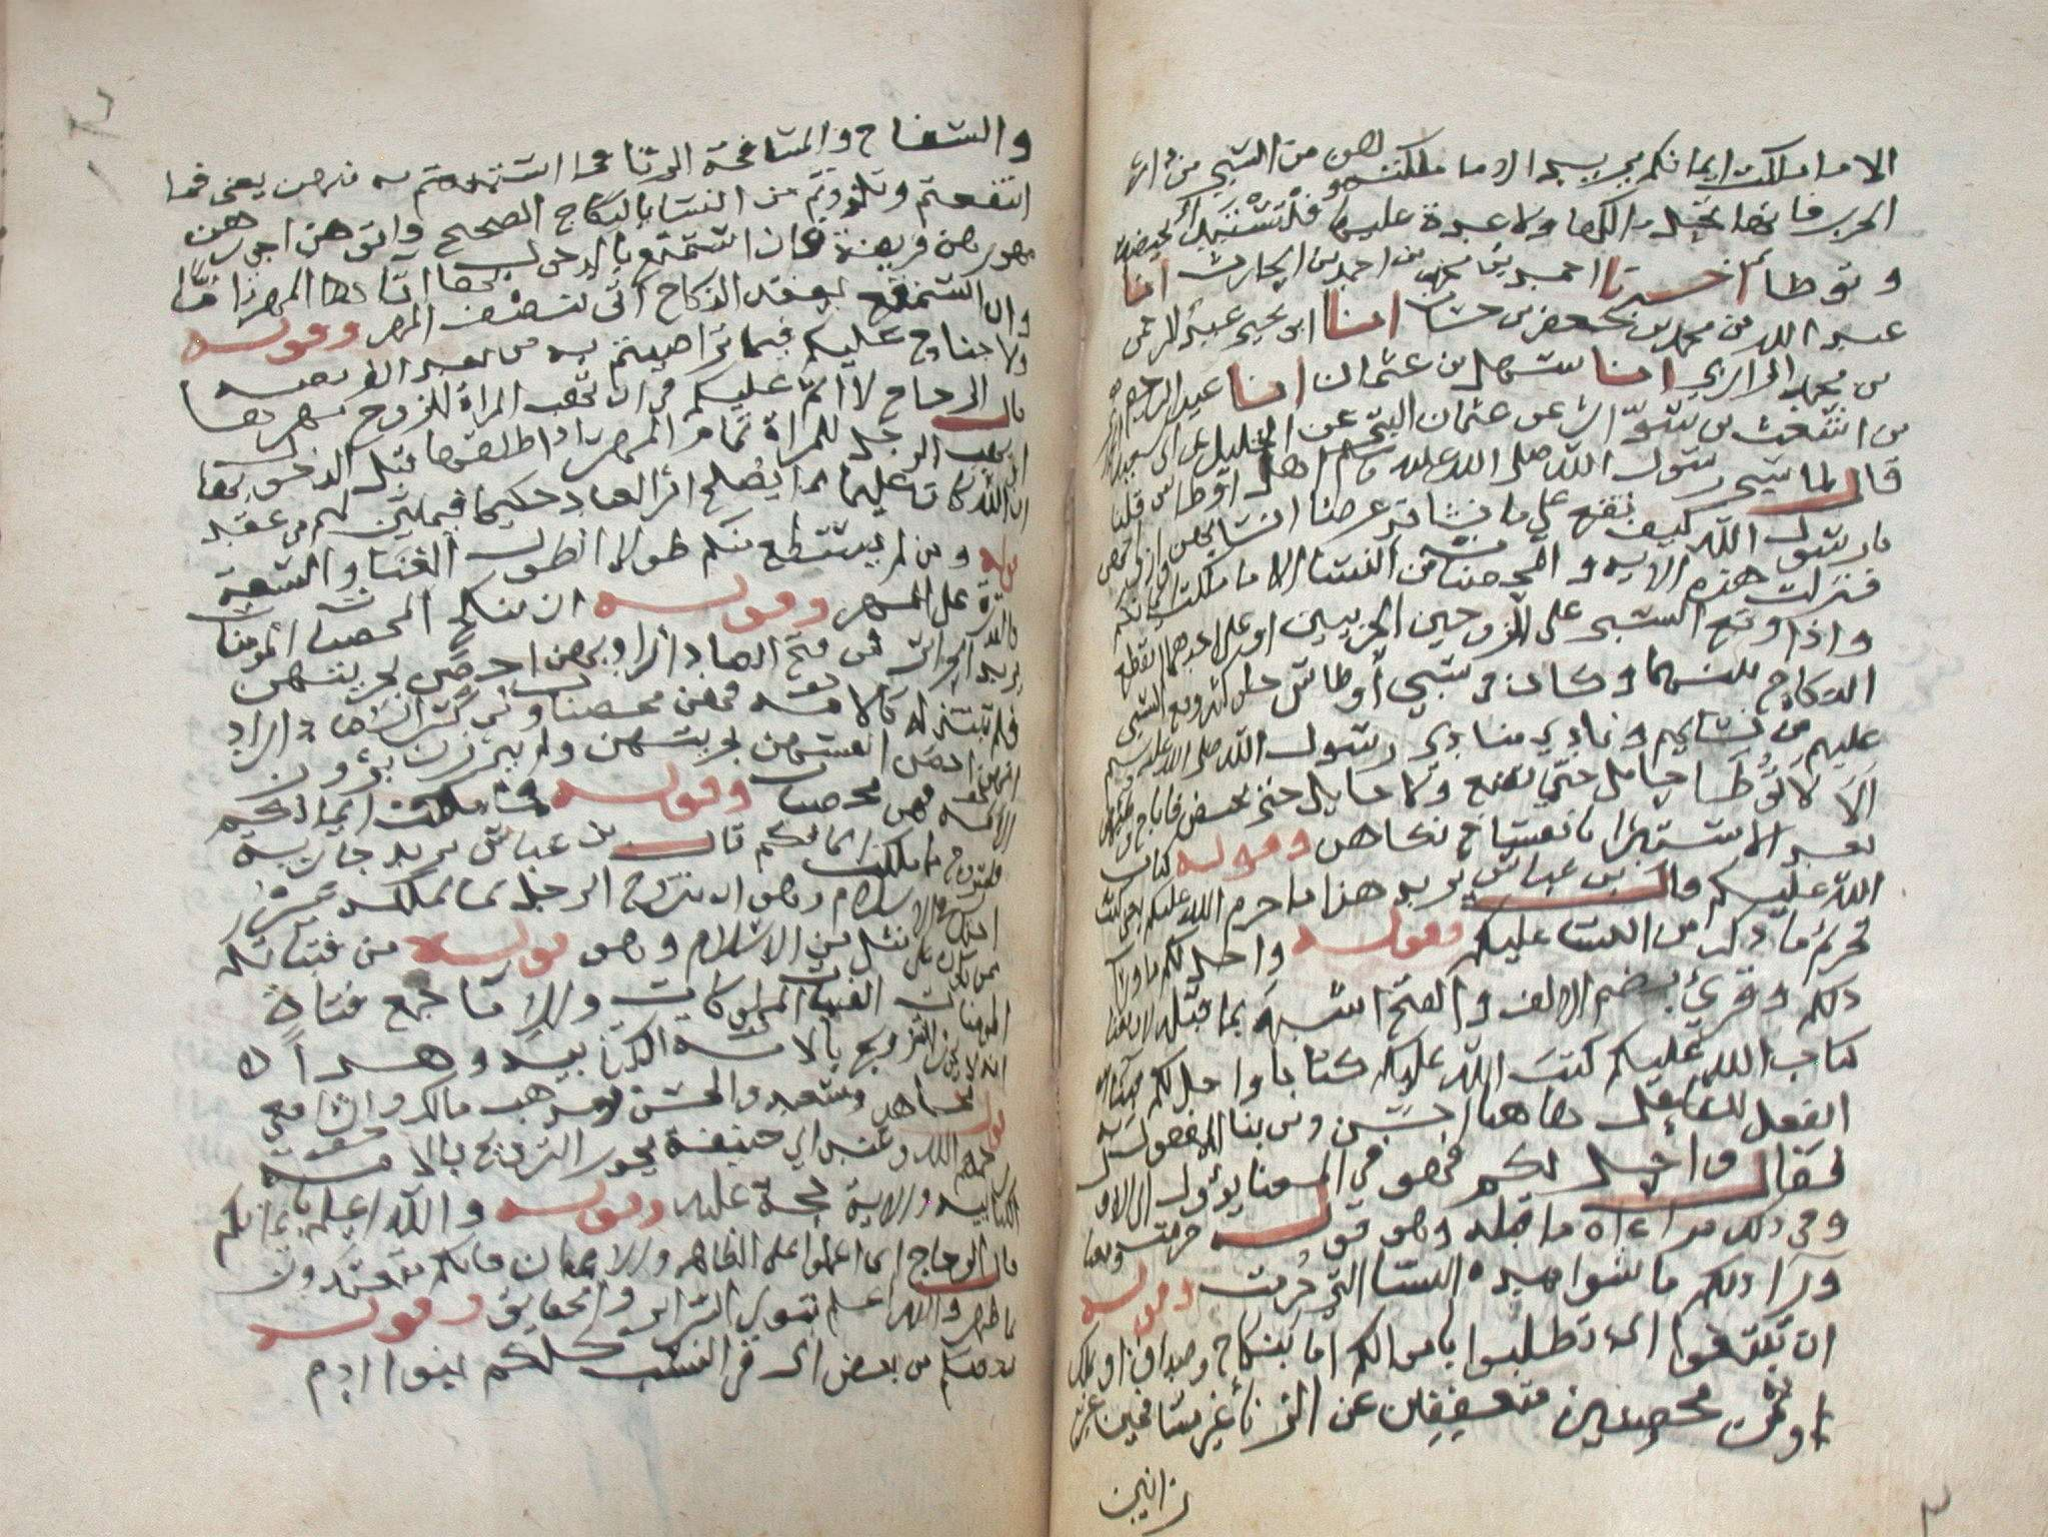 الا ما ملكت ايمانكم يريد الا ما ملكتموهن من السبي من دار
الحرب فانها تحل لمالكها ولا عدة عليها فتستبرئ بحيضة
وتوطا اخبرنا احمد بن محمد بن احمد بن الحارث انا
عبد الله بن محمد بن جعفر بن حيان انا ابو يحيى عبد الرحمن
بن محمد الرازي انا سهل بن عثمان انا عبد الرحيم
بن اشعث بن سوار عن عثمان البتي عن ابي الخليل عن ابي سعيد
قال لما سبى رسول الله صلى الله عليه وسلم اهل اوطاس قلنا
يا رسول الله كيف نقع على نسا قد عرفنا انسابهن وازواجهن
فنزلت هذه الاية والمحصنات من النسا الا ما ملكت ايمانكم
واذا وقع السبي على الزوجين الحربيين او على احدهما انقطع
النكاح بينهما وكان في سبي أوطاس خلق كثير وقع السبي
عليهم من نسايهم ونادي منادي رسول الله صلى الله عليه وسلم
الا لا توطا حامل حتى تضع ولا حايل حتى تحيض فاباح وطئهن
بعد الاستبرا بانفساخ نكاحهن وقوله كتاب
الله عليكم قال بن عباس يريد هذا ما حرم الله عليكم يعني كتب
تحريم ما ذكر من النسا عليكم وقوله واحل لكم ما ورآ
ذلكم وقرئ بضم الالف والفتح اشبه بما قبله لان معنا
كتاب الله عليكم كتب الله عليكم كتابا واحل لكم
الفعل للفاعل هاهنا احسن ومن بنا للمفعول به
فقال واحل لكم فهو في المعنا يؤول الى الاول
وفي ذلك مراعاة ما قبله وهو قول حرمت ومعنا
ورآ ذلكم ما سوا هذه النسا التي حرمت وقوله
ان تبتغوا اى تطلبوا باموالكم اما بنكاح وصداق او بملك
وثمن محصنين متعففين عن الزنا غير مسافحين غير
زانين
والسفاح والمسافحة الزنا فما استمتعتم به منهن يعنى فما
انتفعتم وتلذذتم من النسا بالنكاح الصحيح وآتوهن اجورهن
مهورهن فريضة فان استمتع بالدخول بها آتاها المهر تاما
وان استمتع بعقد النكاح آتى نصف المهر وقوله
ولا جناح عليكم فيما تراضيتم به من بعد الفريضه
قال الزجاج لا اثم عليكم في ان تهب المراة للزوج مهرها
او يهب الرجل للمراة تمام المهر اذا طلقها قبل الدخول بها
ان الله كان عليما بما يصلح امر العباد حكيما فيما بين لهم من عقد
ومن لم يستطع منكم طولا الطول الغنا والسعة
والقدرة على المهر وقوله ان ينكح المحصنات المومنات
يريد الحراير فمن فتح الصاد اراد بهن احصن بحريتهن
فلم تبتذلن كالامة فهن محصنات ومن كسر الصاد اراد
انهن احصن انفسهن بحريتهن ولم يبرزن بروز
الامة فهن محصنات وقوله فمما ملكت ايمانكم
فليتزوج مما ملكت ايمانكم قال بن عباس يريد جارية
وهو ان يتزوج الرجل بما يملكه غيره
ممن يكون على مثل دين الاسلام وهو قوله من فتياتكم
المومنات الفتيات المملوكات والامآ جمع فتاة
انه لا يجوز التزويج بالامة الكتابيه وهذا
قول مجاهد وسعيد والحسن ومذهب مالك والشافعي
رحمهم الله وعند ابي حنيفة يجوز التزويج بالامة
الكتابيه والاية حجة عليه وقوله والله اعلم بايمانكم
قال الزجاج اى اعملوا على الظاهر والايمان فانكم متعبدون
بما ظهر والله اعلم يتولى السراير والحقايق وقوله
بعضكم من بعض اى في النسب كلكم بنوا ادم